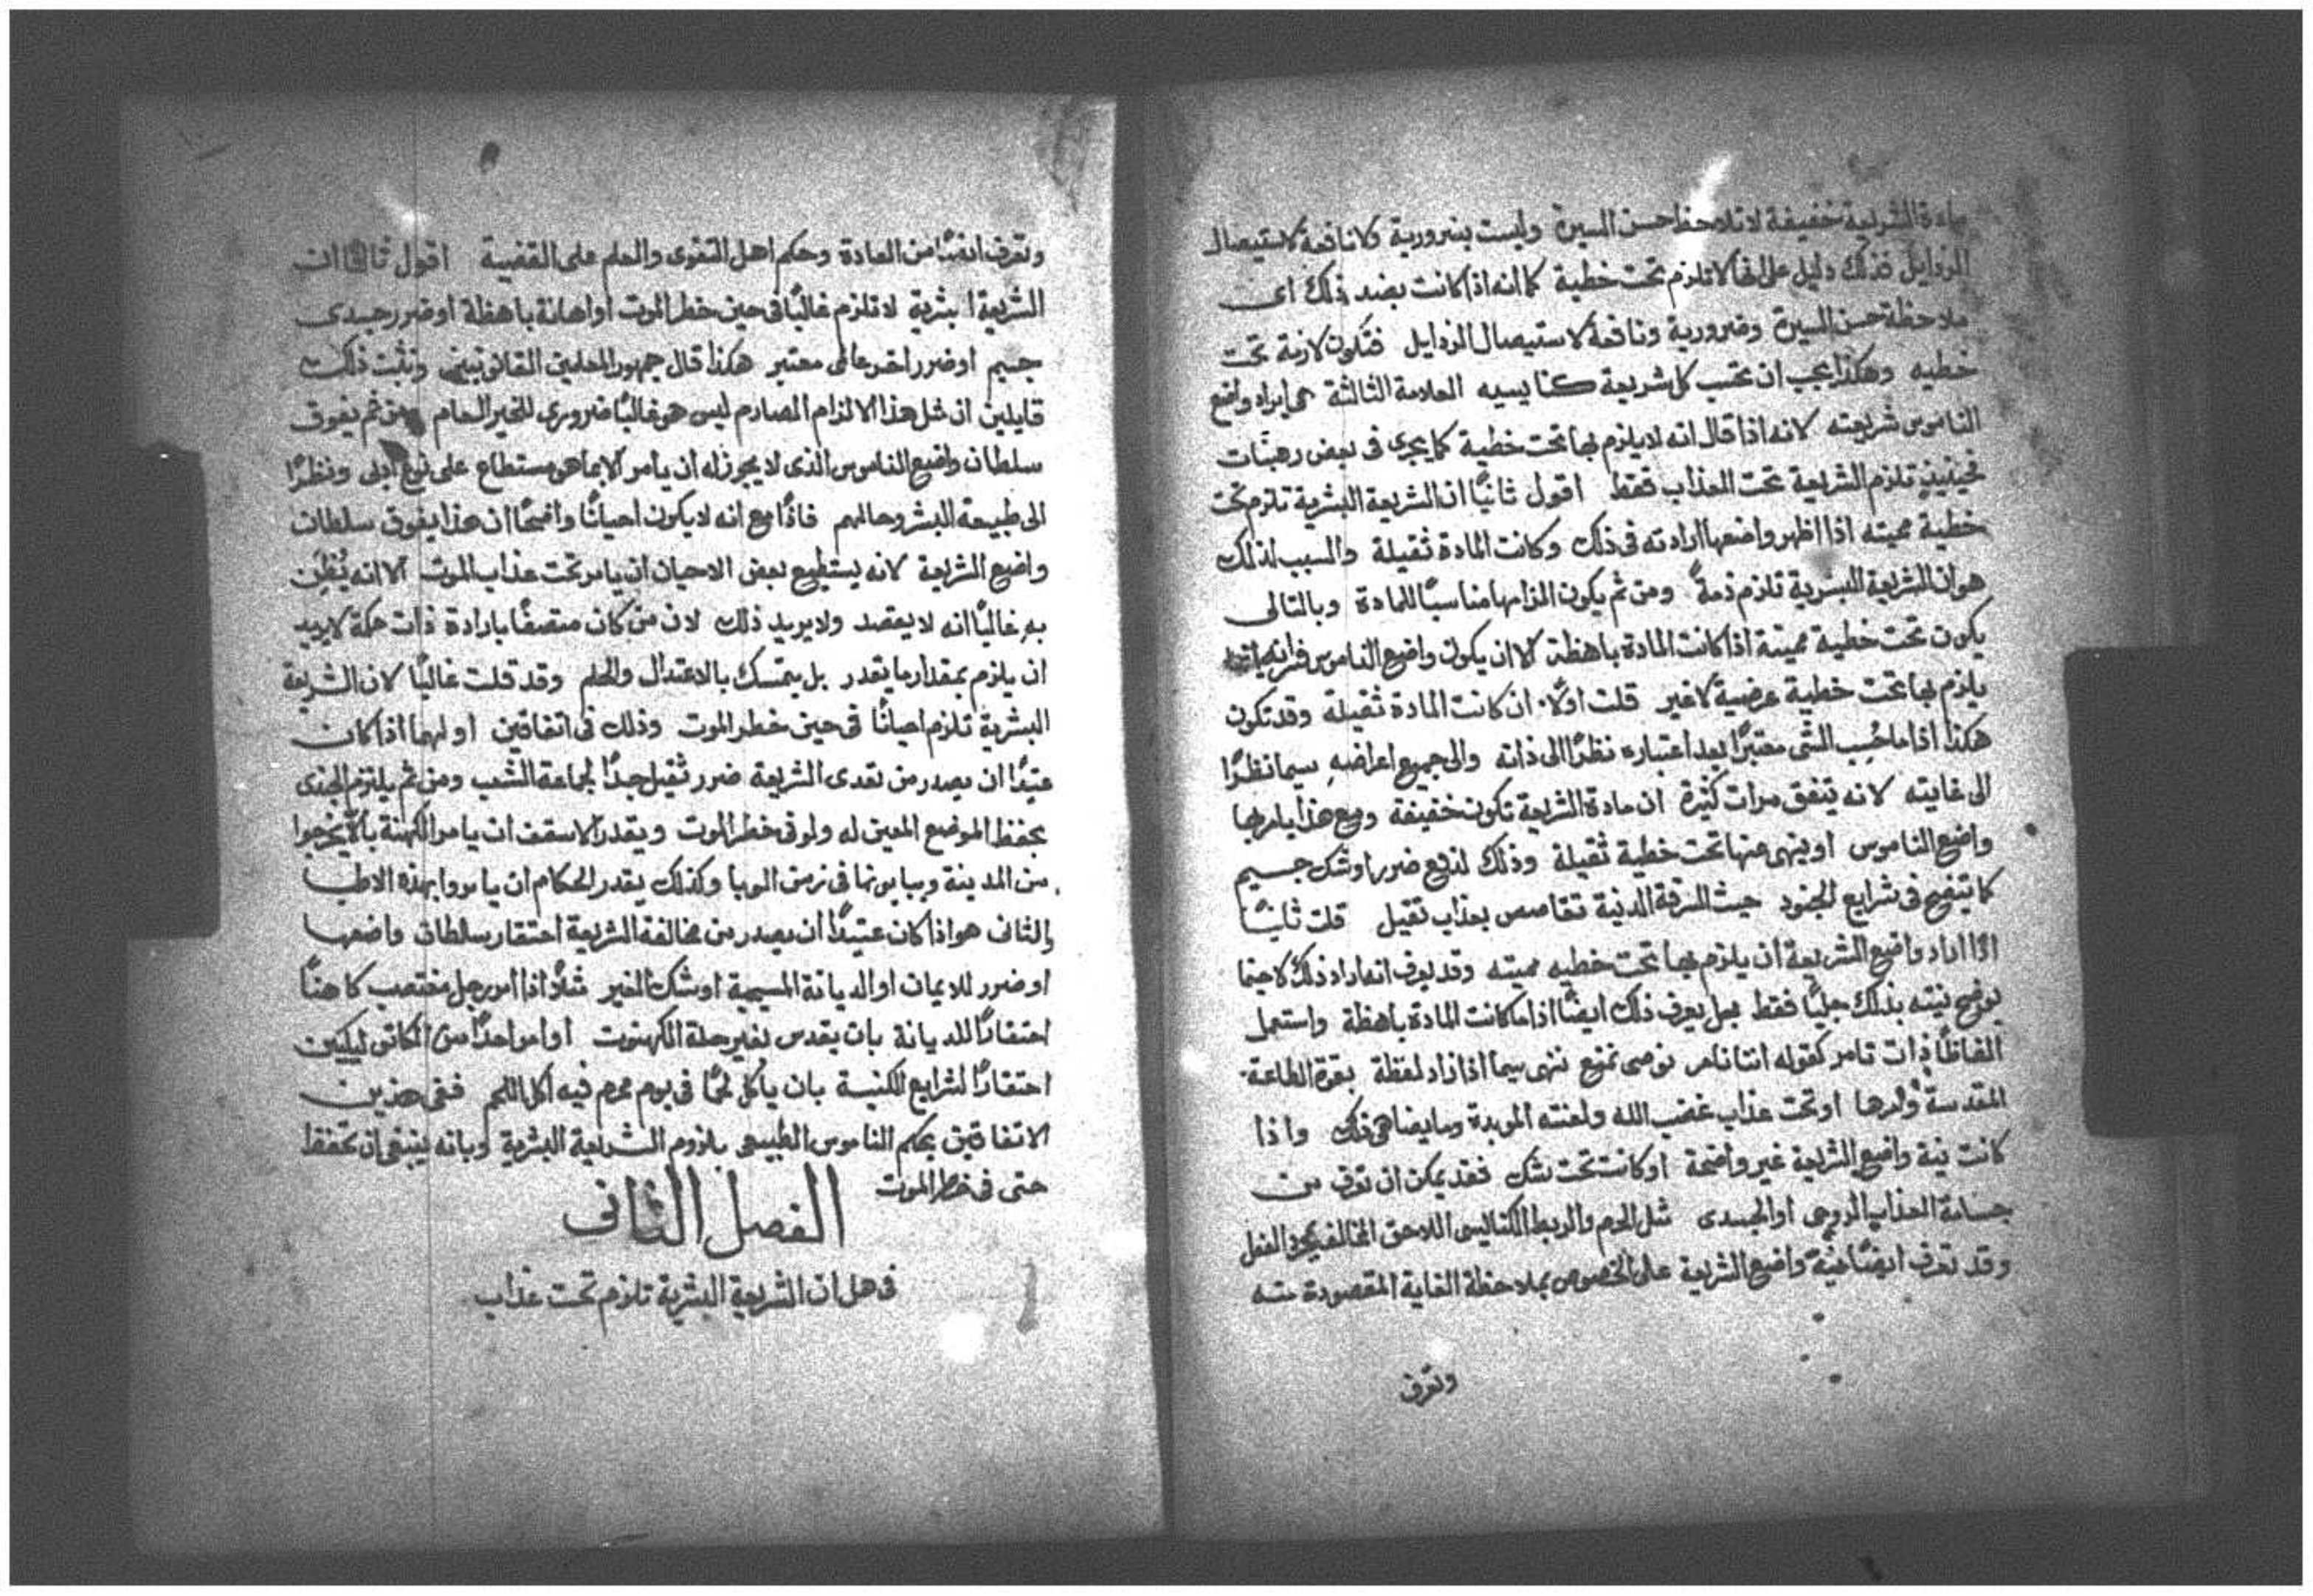 مادة الشريعة خفيفة لا تلاحظ حسن السيرة وليست بضرورية ولا نافعة لاستيصال
الرذايل فذلك دليل على انها لا تلزم تحت خطية كما انه اذا كانت بضد ذلك اى
ملاحظة حسن السيرة وضرورية ونافعة لاستيصال الرذايل فتكون لازمة تحت
خطيه وهكذا يجب ان تحتسب كل شريعة كنايسيه العلامة الثالثة هى ايراد واضع
الناموس شريعته لانه اذا قال انه لا يلزم بها تحت خطية كما يجرى فى بعض رهبنات
فحينيذٍ تلزم الشريعة تحت العذاب فقط اقول ثانيًا ان الشريعة البشرية تلزم تحت
خطية مميته اذا اظهر واضعها ارادته فى ذلك وكانت المادة ثقيلة والسبب لذلك
هو ان الشريعة البشرية تلزم ذمةً ومن ثم يكون الزامها مناسبًا للمادة وبالتالى
يكون تحت خطية مميتة اذا كانت المادة باهظة الا ان يكون واضع الناموس
يلزم بها تحت خطية عرضية لا غير قلت اولًا ان كانت المادة ثقيلة وقد تكون
هكذا اذا ما حُسِب الشى معتبرًا بعد اعتباره نظرًا الى ذاته والى جميع اعراضهِ سيما نظرًا
الى غايته لانه يتفق مرات كثيرة ان مادة الشريعة تكون خفيفة ومع هذا يامر بها
واضع الناموس او ينهى عنها تحت خطية ثقيلة وذلك لدفع ضرر او شك جسيم
كما يتضح فى شرايع الجنود حيث السرقة الدنية تقاصص بعذاب ثقيل قلت ثانيًا
اذا اراد واضع الشريعة ان يلزم بها تحت خطيه مميته وقد يعرف انه اراد ذلك لا حينما
يوضح نيته بذلك جليًا فقط بل يعرف ذلك ايضًا اذا ما كانت المادة باهظة واستعمل
الفاظًا ذات تامر كقوله اننا نامر نوصى نمنع ننهى سيما اذا زاد لفظة بقوة الطاعة
المقدسة والرها او تحت عذاب غضب الله ولعنته الموبدة وما يضاهى ذلك واذا
كانت نية واضع الشريعة غير واضحة او كانت تحت شك فقد يمكن ان تعرف من
جسامة العذاب الروحى او الجسدى مثل الحرم والربط الكنايسى اللاحق المخالف بمجرد الفعل
وقد تعرف ايضًا نية واضع الشريعة على الخصوص بملاحظة الغاية المقصودة منه
وتعرف
وتعرف ايضًا من العادة وحكم اهل التقوى والعلم على القضية اقول ثالثًا ان
الشريعة البشرية لا تلزم غالبًا فى حين خطر الموت او اهانة باهظة او ضرر جسدى
جسيم او ضرر اخر عالمى معتبر هكذا قال جمهور المعلمين القانونيين ونثبت ذلك
قايلين ان مثل هذا الالزام الصارم ليس هو غالبًا ضرورى للخير العام ومن ثم يفوق
سلطان واضع الناموس الذى لا يجوز له ان يامر الا بما هو مستطاع على نوع ادبى ونظرًا
الى طبيعة البشر وحالهم فاذًا مع انه لا يكون احيانًا واضحًا ان هذا يفوق سلطان
واضع الشريعة لانه يستطيع بعض الاحيان ان يامر تحت عذاب الموت الا انه يُظَن
بهِ غالبًا انه لا يقصد ولا يريد ذلك لان من كان متصفًا بارادة ذات حكمة لا يريد
ان يلزم بمقدار ما يقدر بل يتمسك بالاعتدال والحلم وقد قلت غالبًا لان الشريعة
البشرية تلزم احيانًا فى حين خطر الموت وذلك فى اتفاقين اولهما اذا كان
عتيدًا ان يصدر من تعدى الشريعة ضرر ثقيل جدًا لجماعة الشعب ومن ثم يلتزم الجندى
بحفظ الموضع المعين له ولو فى خطر الموت ويقدر الاسقف ان يامر الكهنة بالا يخرجوا
من المدينة ويباينونها فى زمن الوبا وكذلك يقدر الحكام ان يامروا بهذه الاطبا
والثانى هو اذا كان عتيدًا ان يصدر من مخالفة الشريعة احتقار سلطان واضعها
او ضرر للايمان او الديانة المسيحية او شك الغير مثلًا اذا امر رجل مغتصب كاهنًا
احتقارًا للديانة بان يقدس بغير حلة الكهنوت او امر احدًا من الكاثوليكيين
احتقارًا لشرايع الكنيسة بان ياكل لحمًا فى يوم محرم فيه اكل اللحم ففى هذين
الاتفاقين يحكم الناموس الطبيعى بلزوم الشريعة البشرية وبانه ينبغى ان تحفظ
حتى فى خطر الموت
الفصل الثانى
فى هل ان الشريعة البشرية تلزم تحت عذاب